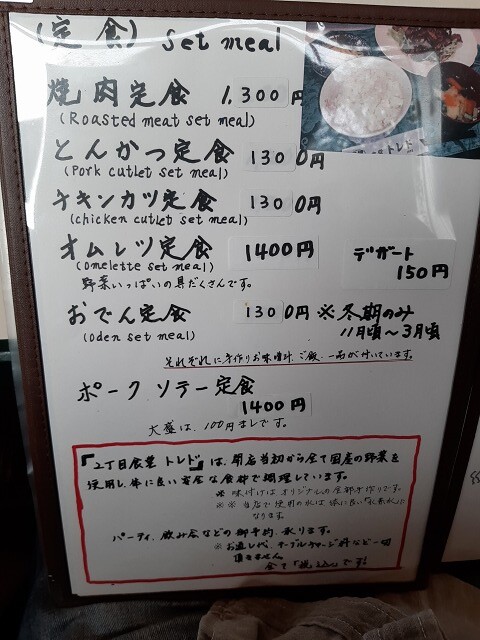 (定食) Set meal
焼肉定食 1,300円
(Roasted meat set meal)
とんかつ定食 1300円
(Pork cutlet set meal)
チキンカツ定食 1300円
(chicken cutlet set meal)
オムレツ定食 1400円
(Omelette set meal)
野菜いっぱいの具だくさんです。
デザート
150円
おでん定食 1300円 ※冬期のみ
(Oden set meal) 11月頃〜3月頃
それぞれに手作りお味噌汁、ご飯、一品が付いています。
ポークソテー定食
1400円
大盛は、100円ましです。
『2丁目食堂 トレド』は、開店当初から全て国産の野菜を
使用し、体に良い安全な食材で調理しています。
※ 味付けはオリジナルの全部手作りです。
※※ 当店で使用の水は体に良い「水素水」に
なります。
パーティ、飲み会などの御予約、承ります。
※お通し代、テーブルチャージ料など一切
頂きません
全て「税込」です!
トレド